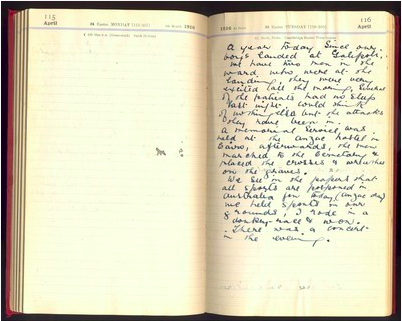 115
April
MONDAY
1916
1916
TUESDAY
116
April
A year today since our
boys landed at Gallipoli.
We have two men in the
ward who were at the
landing, they were very
excited all the morning, Several
of the patients had no sleep
last night. Could think
of nothing else but the attacks
they have been in.
A memorial Service was
held at the Anzac hostel in
Cairo, afterwards, the men
marched to the Cemetery &
placed the crosses & wreaths
on the graves.
We see in the papers that
all sports are postponed in
Australia for today (Anzac day)
we held sports in our
grounds, I rode in a
donkey race & won.
There was a concert
in the evening.